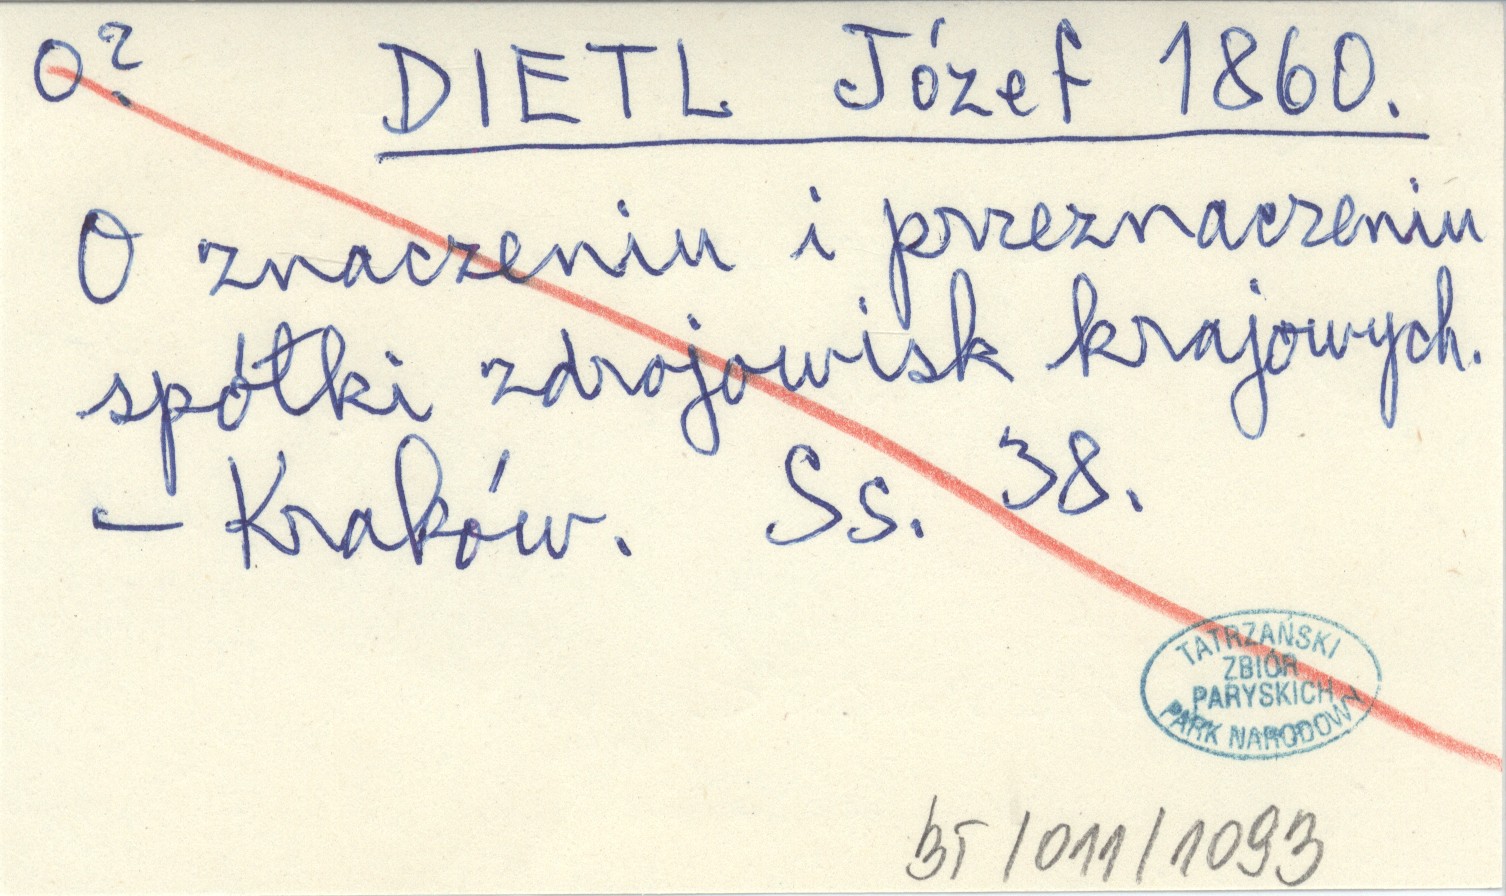 O? DIETL Józef 1860.
O znaczeniu i przeznaczeniu
spółki zdrojowisk krajowych.
– Kraków. Ss. 38.
TATRZAŃSKI
ZBIÓR
PARYSKICH
PARK NARODOWY
BT/011/1093